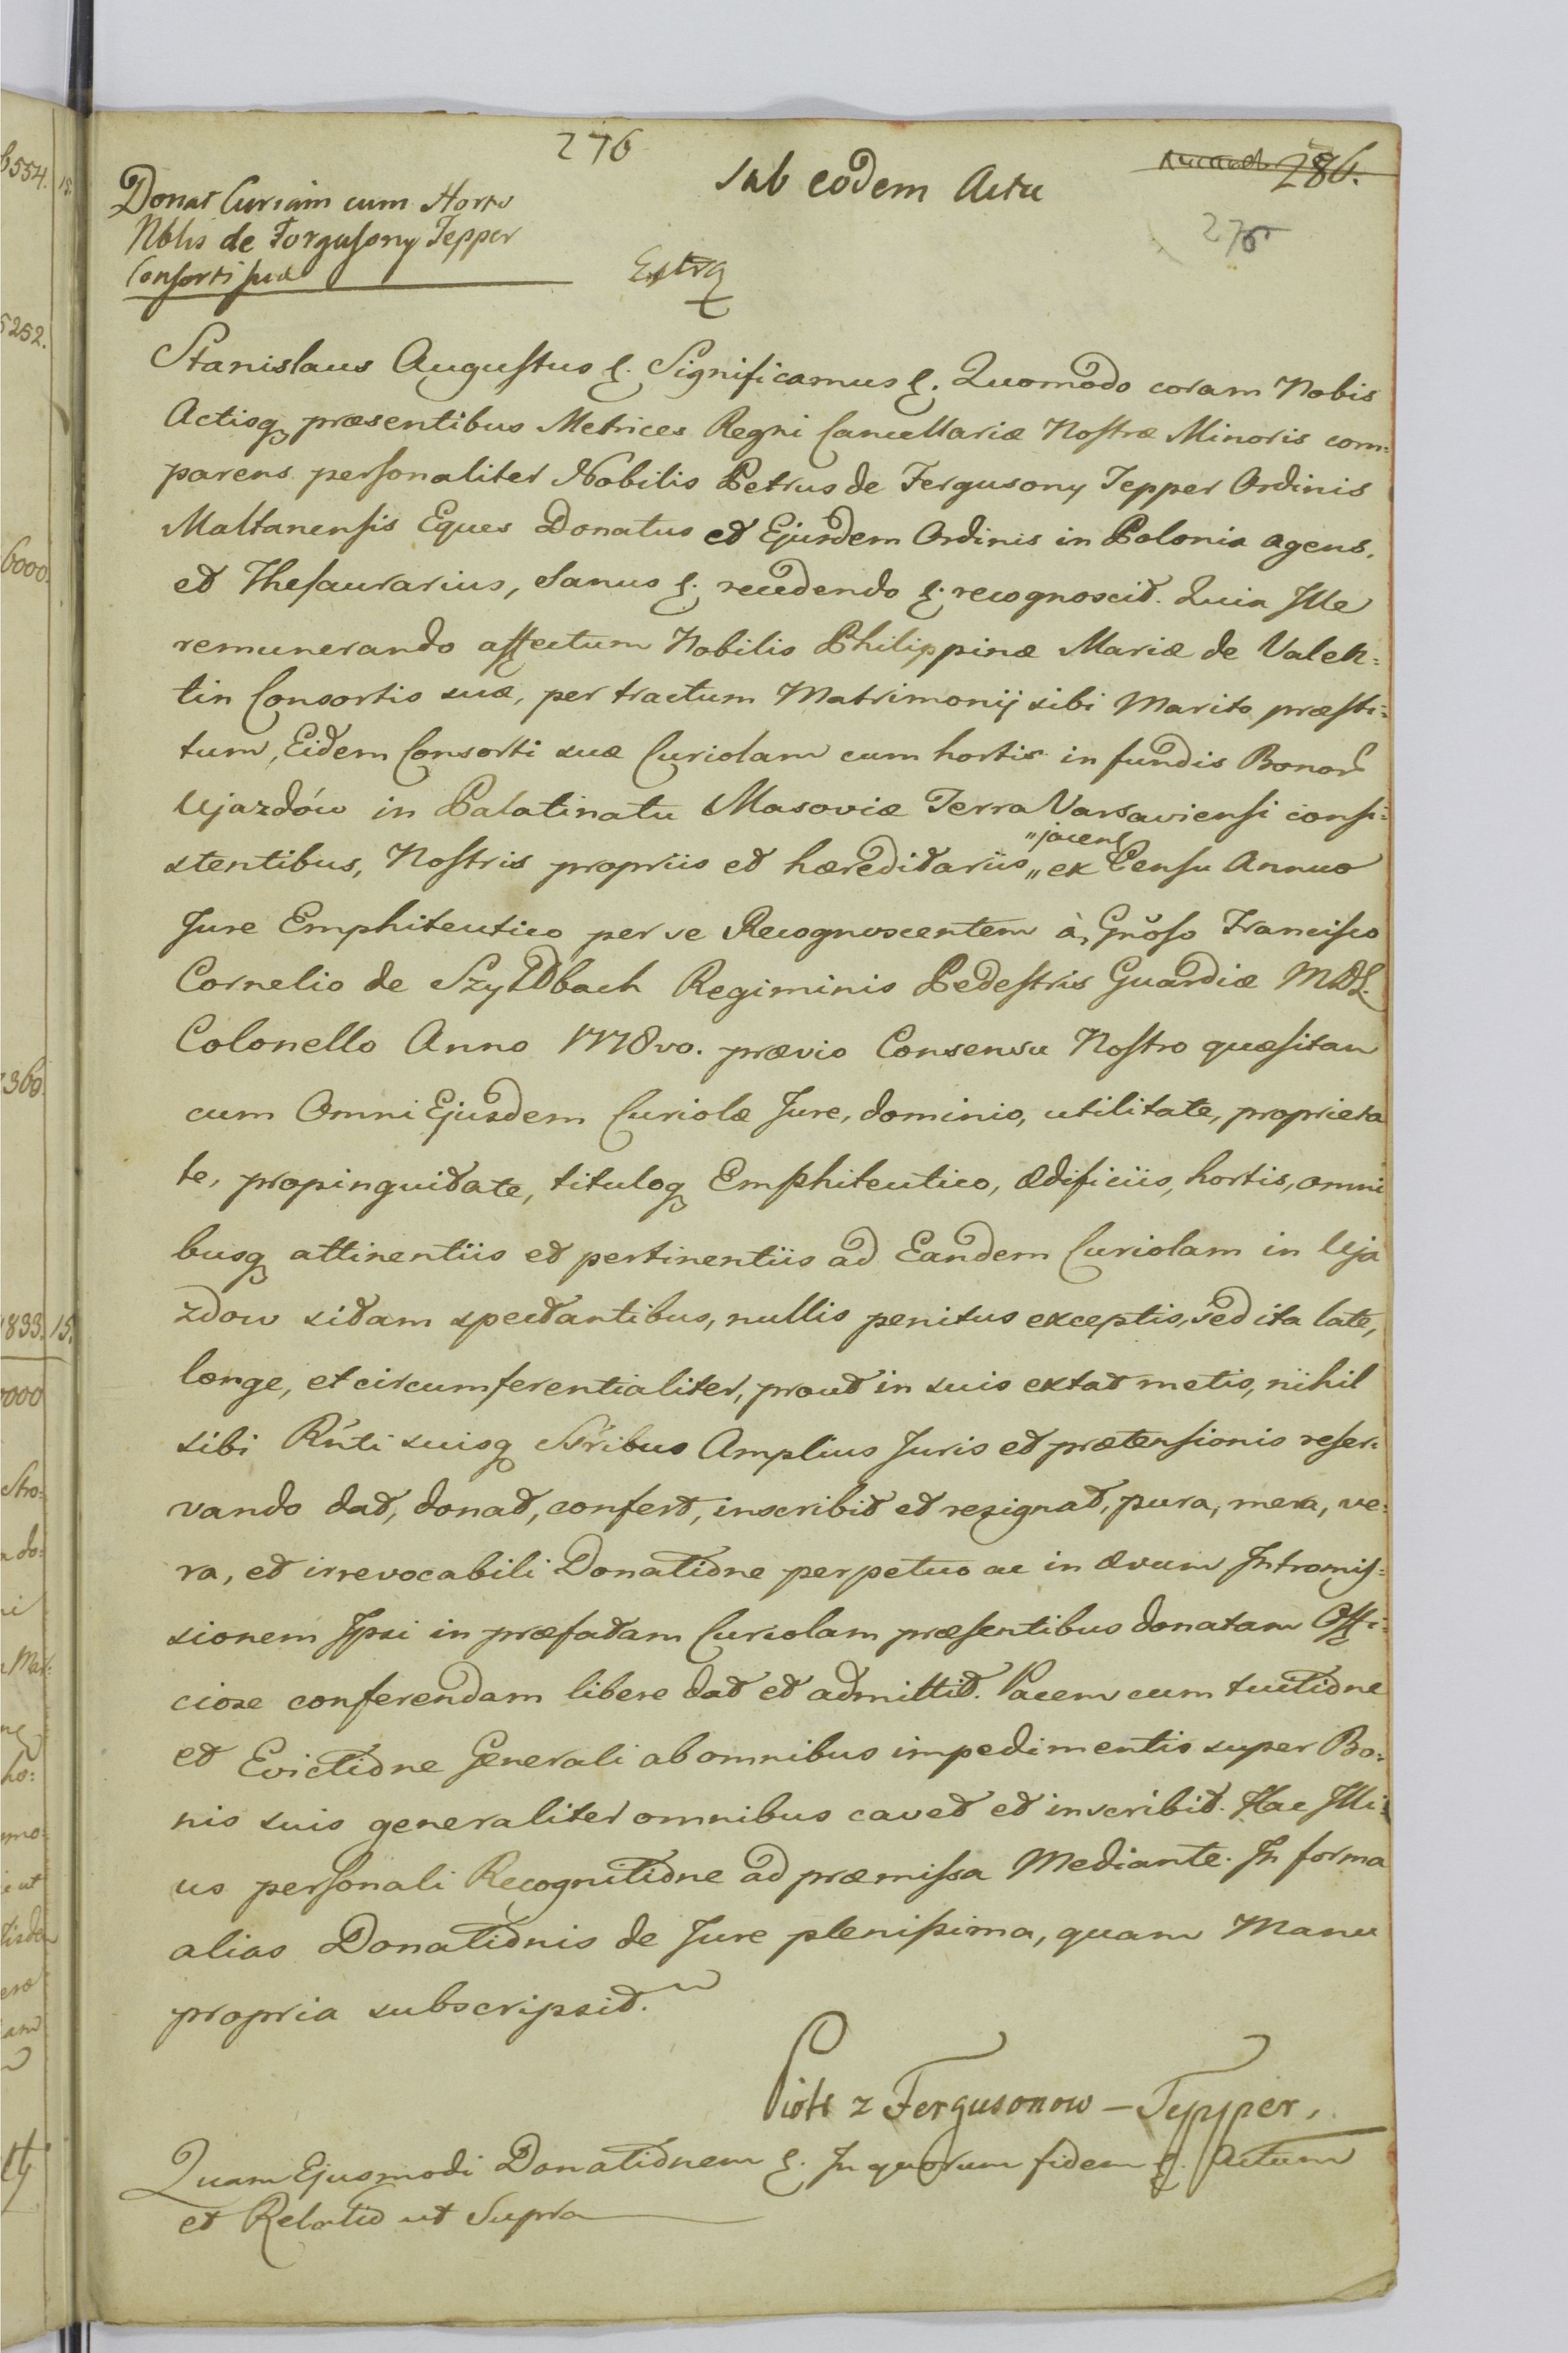 276
Sub eodem Actu
286.
276
Donat Curiam cum Horto
Nblis de Forgusony Tepper
Consorti suæ
Extrq
Stanislaus Augustus &. Significamus &. Quomodo coram Nobis
Actisq præsentibus Metrices Regni Cancellariæ Nostræ Minoris com:
parens personaliter Nobilis Petrus de Fergusony Tepper Ordinis
Maltanensis Eques Donatus et Ejusdem Ordinis in Polonia agens,
et Thesaurarius, Sanus &. recedendo &. recognoscit. Quia Ille
remunerando affectum Nobilis Philippinæ Mariæ de Valen:
tin Consortis suæ, per tractum Matrimonij sibi Marito præsti:
tum, Eidem Consorti suæ Curiolam cum hortis in fundis Bonor
Ujazdów in Palatinatu Masoviæ Terra Varsaviensi consi:
stentibus, Nostris propriis et hæreditariis „jacens„ ex Censu Annuo
Jure Emphiteutico per se Recognoscentem à Gnoso Francisco
Cornelio de Szyldbach Regiminis Pedestris Guardiæ MDL.
Colonello Anno 1778vo. prævio Consensu Nostro quæsitam
cum Omni Ejusdem Curiolæ Jure, dominio, utilitate, proprieta
te, propinquitate, tituloq Emphiteutico, ædificiis, hortis, omni
busq attinentiis et pertinentiis ad Eandem Curiolam in Uja
zdow sitam spectantibus, nullis penitus exceptis, sed ita late,
longe, et circumferentialiter, prout in suis extat metis, nihil
sibi Rńti suisq Sŕribus Amplius Juris et prætensionis reser:
vando dat, donat, confert, inscribit et resignat, pura, mera, ve:
ra, et irrevocabili Donatione perpetuo ac in ævum Intromis:
sionem Ipsi in præfatam Curiolam præsentibus donatam Offi:
ciose conferendam libere dat et admittit. Pacem cum tuitione
et Evictione Generali ab omnibus impedimentis super Bo:
nis suis generaliter omnibus cavet et inscribit. Hac Illi:
us personali Recognitione ad præmissa Mediante. In forma
alias Donationis de Jure plenissima, quam Manu
propria subscripsit.
Piotr z Fergusonow – Tepper,
Quam Ejusmodi Donationem &. In quorum fidem &. Actum
et Relatio ut Supra